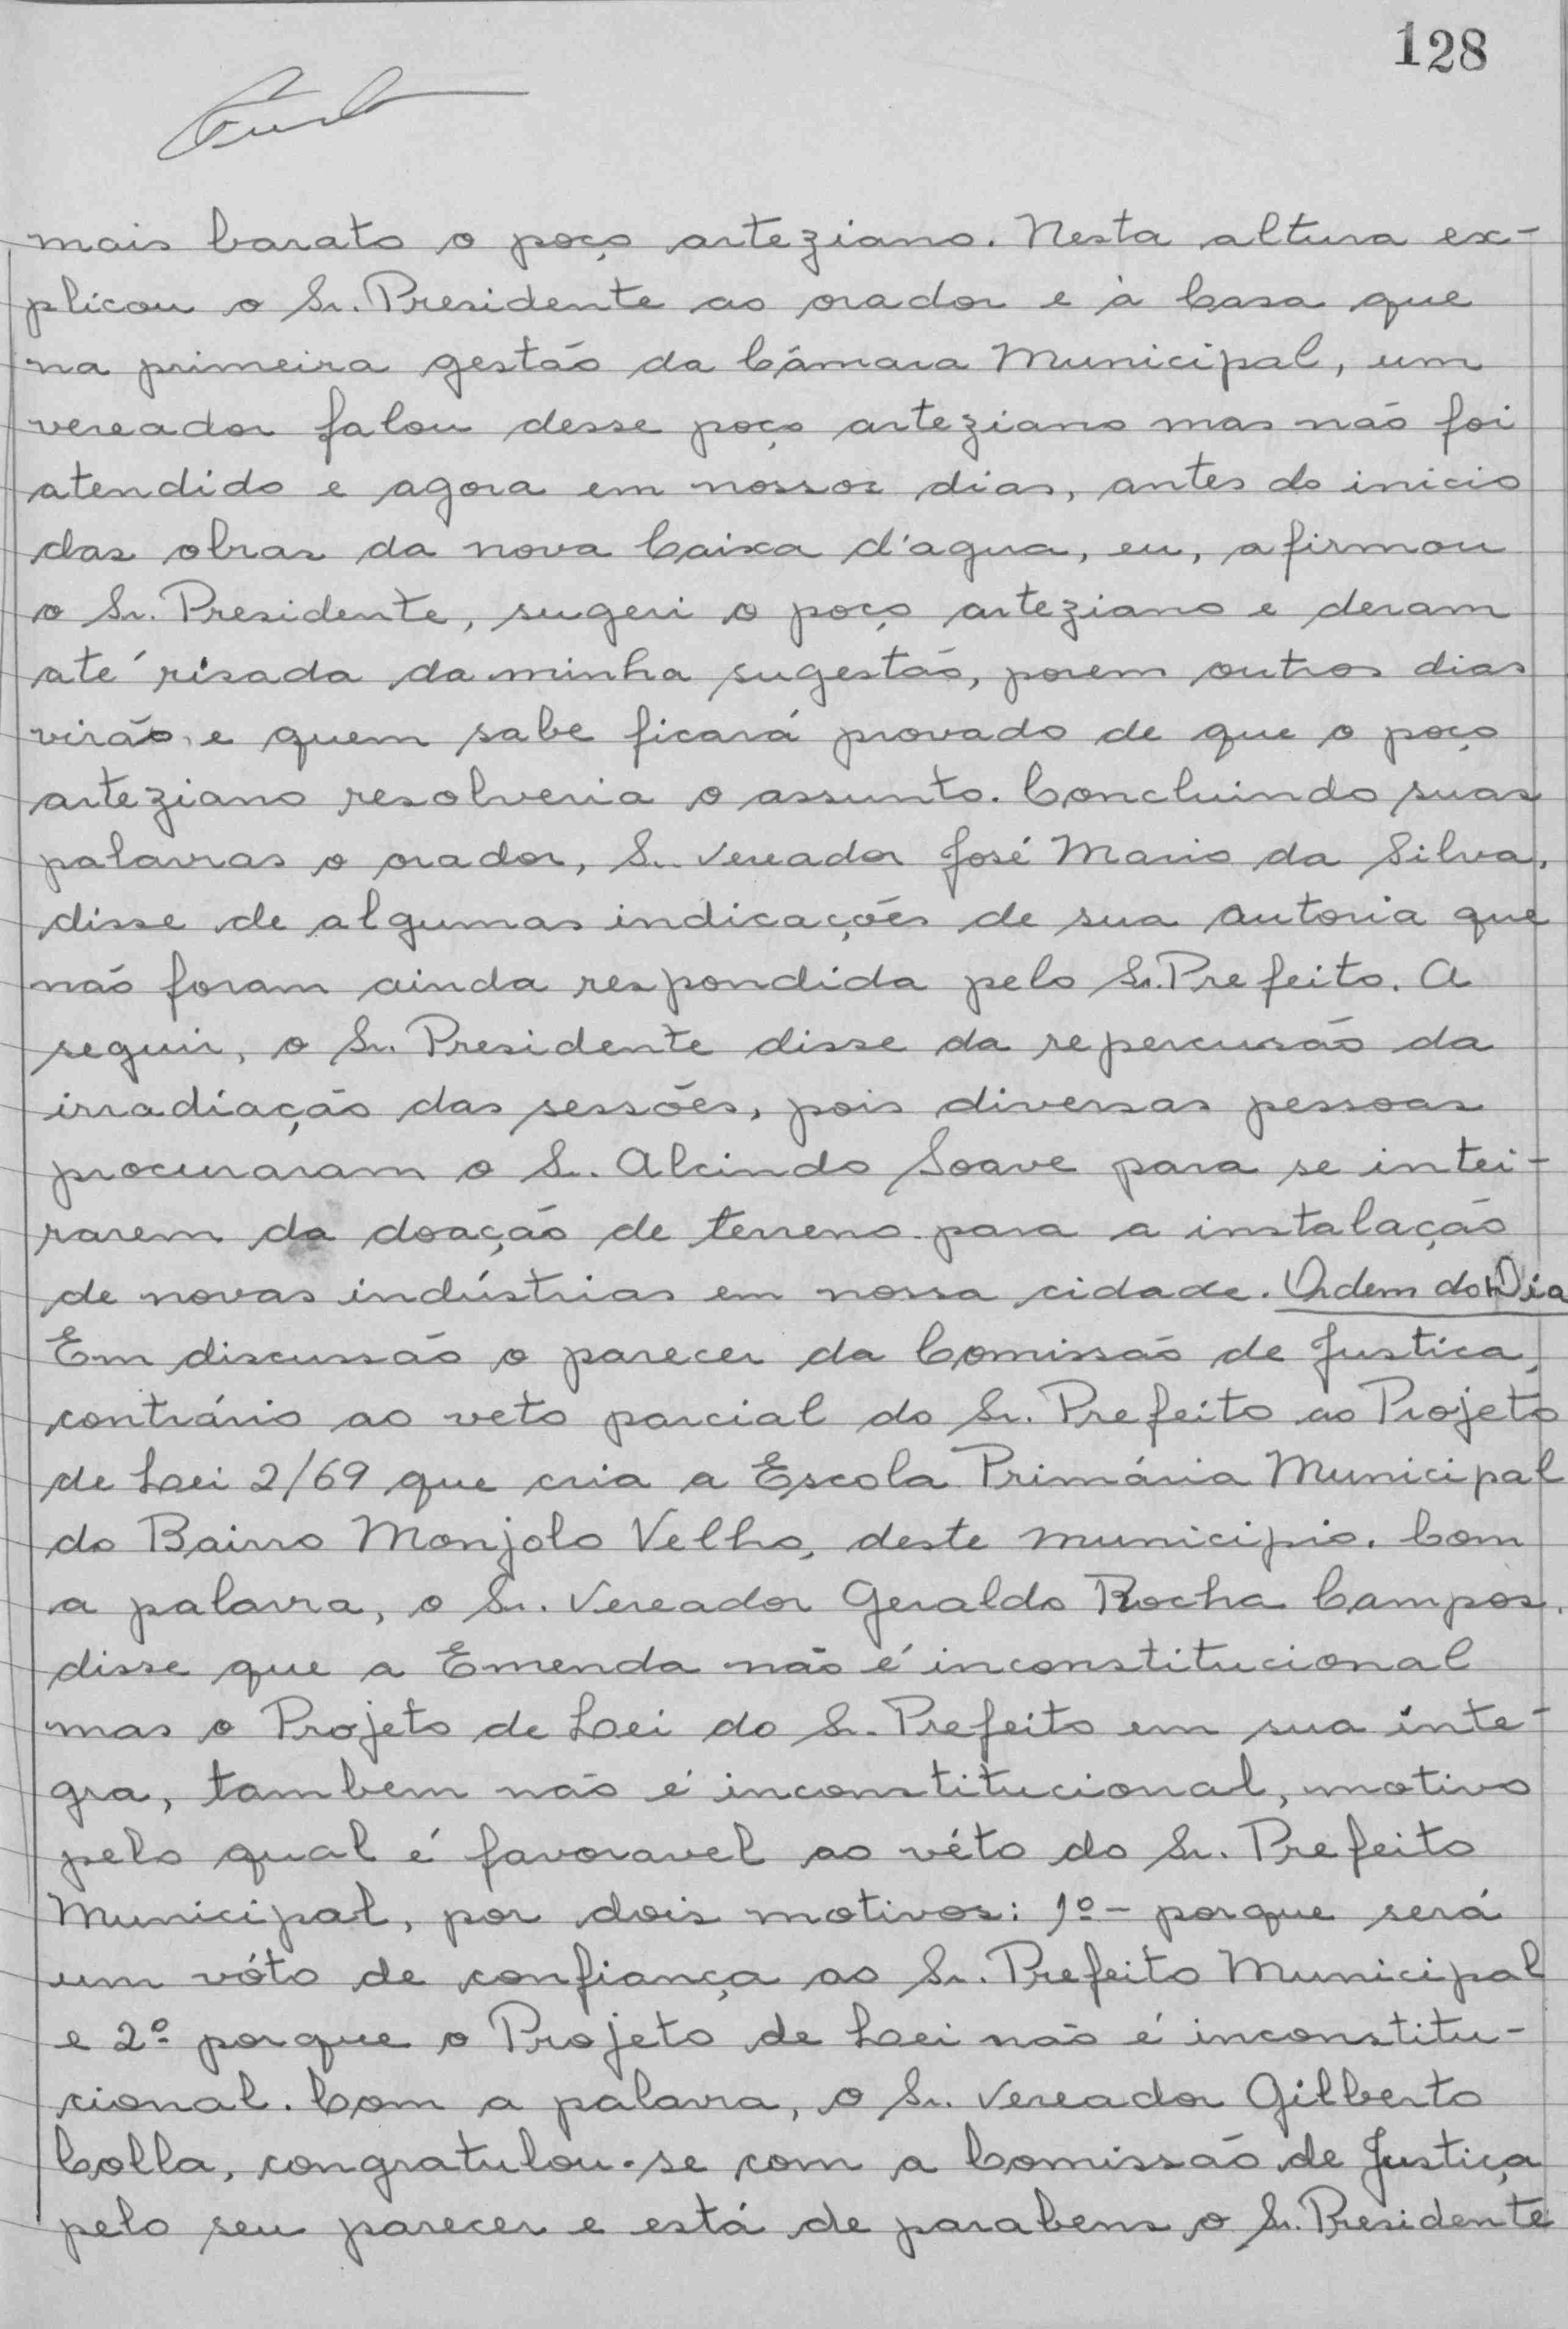 128
mais barato o poço arteziano. Nesta altura ex-
plicou o Sr. Presidente ao orador e à Casa que
na primeira gestão da Câmara Municipal, um
vereador falou desse poço arteziano mas não foi
atendido e agora em nossos dias, antes do inicio
das obras da nova Caixa d'agua, eu, afirmou
o Sr. Presidente, sugeri o poço arteziano e deram
até risada da minha sugestão, porem outros dias
virão, e quem sabe ficará provado de que o poço
arteziano resolveria o assunto. Concluindo suas
palavras o orador, Sr. Vereador José Mario da Silva,
disse de algumas indicações de sua autoria que
não foram ainda respondida pelo Sr. Prefeito. A
seguir, o Sr. Presidente disse da repercusão da
irradiação das sessões, pois diversas pessoas
procuraram o Sr. Alcindo Soave para se intei-
rarem da doação de terreno para a instalação
de novas indústrias em nossa cidade. Ordem do Dia
Em discussão o parecer da Comissão de Justica,
contrário ao veto parcial do Sr. Prefeito ao Projeto
de Lei 2/69 que cria a Escola Primária Municipal
do Bairro Monjolo Velho, deste municipio. Com
a palavra, o Sr. Vereador Geraldo Rocha Campos.
disse que a Emenda não é inconstitucional
mas o Projeto de Lei do Sr. Prefeito em sua inte-
gra, tambem não é inconstitucional, motivo
pelo qual é favoravel ao véto do Sr. Prefeito
Municipal, por dois motivos: 1º- porque será
um vóto de confiança ao Sr. Prefeito Municipal
e 2º porque o Projeto de Lei não é inconstitu-
cional. Com a palavra, o Sr. Vereador Gilberto
Colla, congratulou-se com a Comissão de Justiça
pelo seu parecer e está de parabens o Sr. Presidente